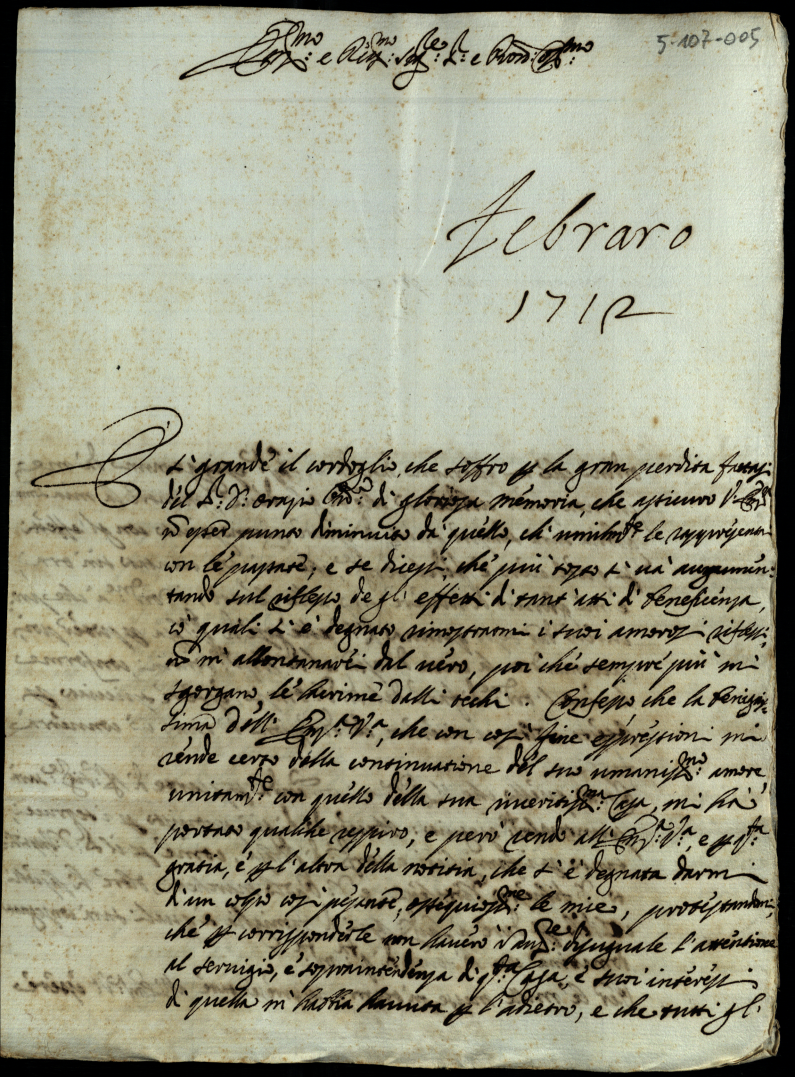 Em:mo e Rev:mo Sig:re S: e Pron Col:mo
5-107-005
Febraro
1712
È sì grande il cordoglio, che soffro p la gran perdita fattasi
del S: D: Orazio di gloriosa memoria, che assicuro V: Em:
nõ esser punto diminuito da quello, ch'umilm:te le rappresentai
con le passate, e se dicessi, che più tosto si và augumen:
tando sul riflesso degl'effetti di tant'atti di beneficenza,
cõ quali si è degnato rimostrarmi i suoi amorosi riflessi
nõ m'allontanarei dal vero, poi che sempre più mi
sgorgano le lacrime dalli occhi. Confesso che la benignis:
sima dell'Em:a V:a, che con così fine espressioni mi
rende certo della continuatione del suo umaniss:mo amore
unitam:te con quello della sua riveritiss:ma Casa, mi hà
portato qualche respiro, e però rendo all'Em:a V:a, e p q:ta
gratia, e p l'altra della notitia, che si è degnata darmi
d'un colpo così pesante, ossequiosiss:me le mie, protestandomi,
che p corrisponderle non haverò disuguale l'attentione
al servigio, e sopraintendenza di q:ta Casa, e suoi interessi
di quella n'habbia havuta p l'adietro, e che tutti gl'